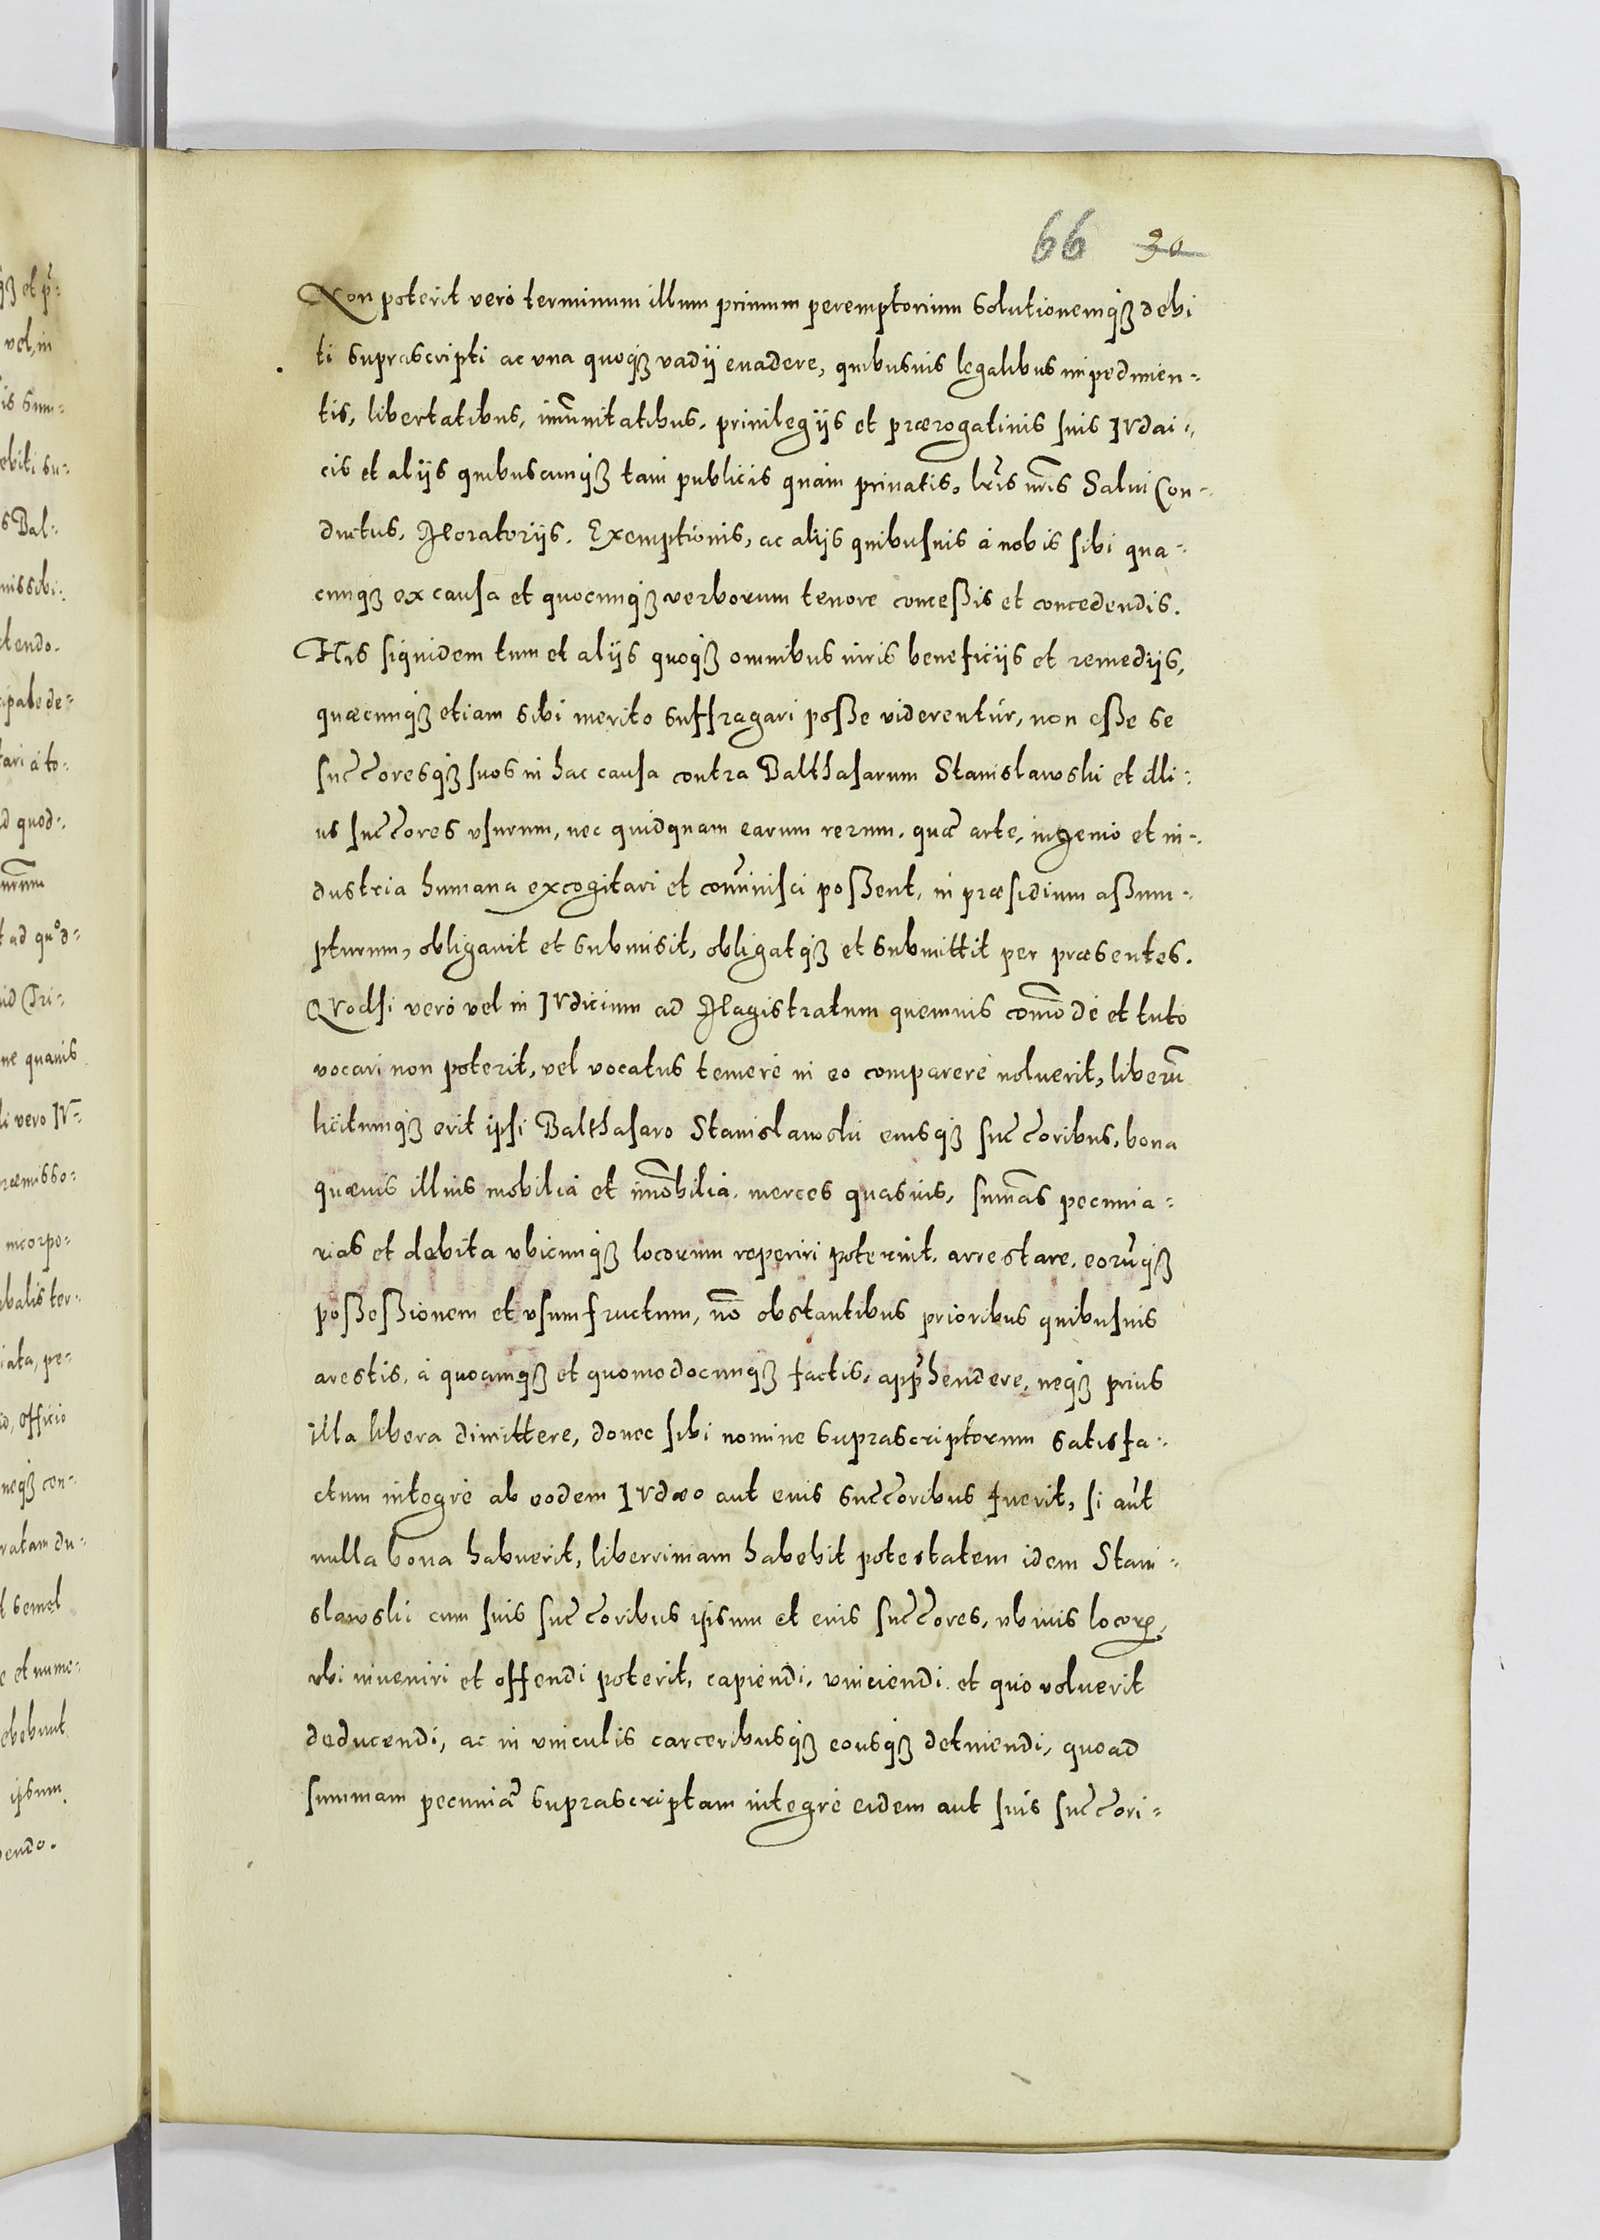 66 30
Non poterit vero terminum illum primum peremptorium solutionemqꝫ debi
ti suprascripti ac vna quoqꝫ vadij euadere, quibusuis legalibus impedimen-
tis, libertatibus, im̃unitatibus, priuilegijs et prærogatiuis suis Iudai-
cis et alijs quibuscunqꝫ tam publicis quàm priuatis, lr̃is nr̃is Salui Con-
ductus, Moratorijs, Exemptionis, ac alijs quibusuis à nobis sibi qua-
cunqꝫ ex causa et quocunqꝫ verborum tenore conceßis et concedendis.
His siquidem tum et alijs quoqꝫ omnibus iuris beneficijs et remedijs,
quæcunqꝫ etiam sibi merito suffragari poße viderentur, non eße se
succ̃oresqꝫ suos in hac causa contra Balthasarum Stanislawski et illi-
us succ̃ores vsurum, nec quidquam earum rerum, quæ arte, ingenio et in-
dustria humana excogitari et com̃inisci poßent, in præsidium aßum-
pturum, obligauit et submisit, obligatqꝫ et submittit per præsentes.
Quodsi verò vel in Iudicium ad Magistratum quemuis com̃odè et tutò
vocari non poterit, vel vocatus temerè in eo comparere noluerit, liberũ
licitumqꝫ erit ipsi Balthasaro Stanislawski eiusqꝫ succ̃oribus, bona
quæuis illius mobilia et im̃obilia, merces quasuis, sum̃as pecunia-
rias et debita vbicunqꝫ locorum reperiri poterint, arrestare, eorũqꝫ
poßeßionem et vsumfructum, nõ obstantibus prioribus quibusuis
arestis, à quocunqꝫ et quomodocunqꝫ factis, app̃hendere, neqꝫ prius
illa libera dimittere, donec sibi nomine suprascriptorum satisfa-
ctum integrè ab eodem Iudæo aut eius succ̃oribus fuerit, si aũt
nulla bona habuerit, liberrimam habebit potestatem idem Stani-
slawski cum suis succ̃oribus ipsum et eius succ̃ores, vbiuis locorꝝ,
vbi inueniri et offendi poterit, capiendi, vinciendi et quò voluerit
deducendi, ac in vinculis carceribusqꝫ eousqꝫ detinendi, quoad
summam pecuniæ suprascriptam integrè eidem aut suis succ̃ori-